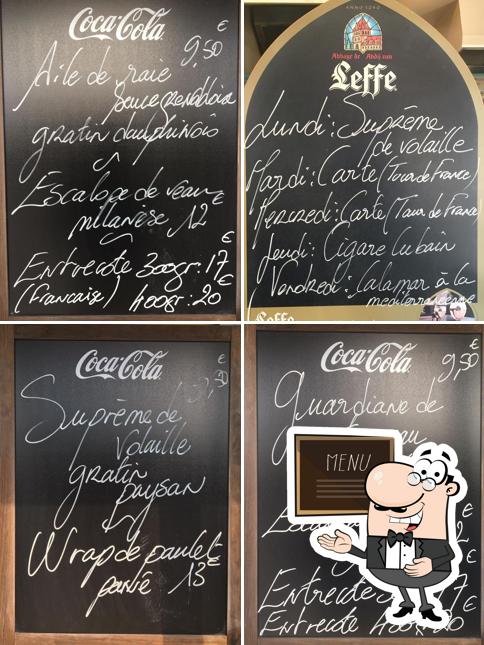 Coca-Cola
€
9,50
Aile de raie
sauce grenobloise
gratin dauphinois
Escalope de veau
milanèse 12 €
Entrecote 300gr : 17 €
(Francaise) 400gr : 20 €
ANNO 1240
Abbaye de Abdij van
Leffe
Lundi : Suprème
de volaille
Mardi : Carte (Tour de France)
Mercredi : Carte (Tour de France)
Jeudi : Cigare Cubain
Vendredi : Calamar à la
mediterranéenne
Leffe
Coca-Cola
€
Suprème de
Volaille
gratin
paysan
Wrap de poulet
pané 13 €
Coca-Cola
€
9,50
Guardiane de
MENU
€
2
€
Entrecote 7
€
Entrecote 400gr 20